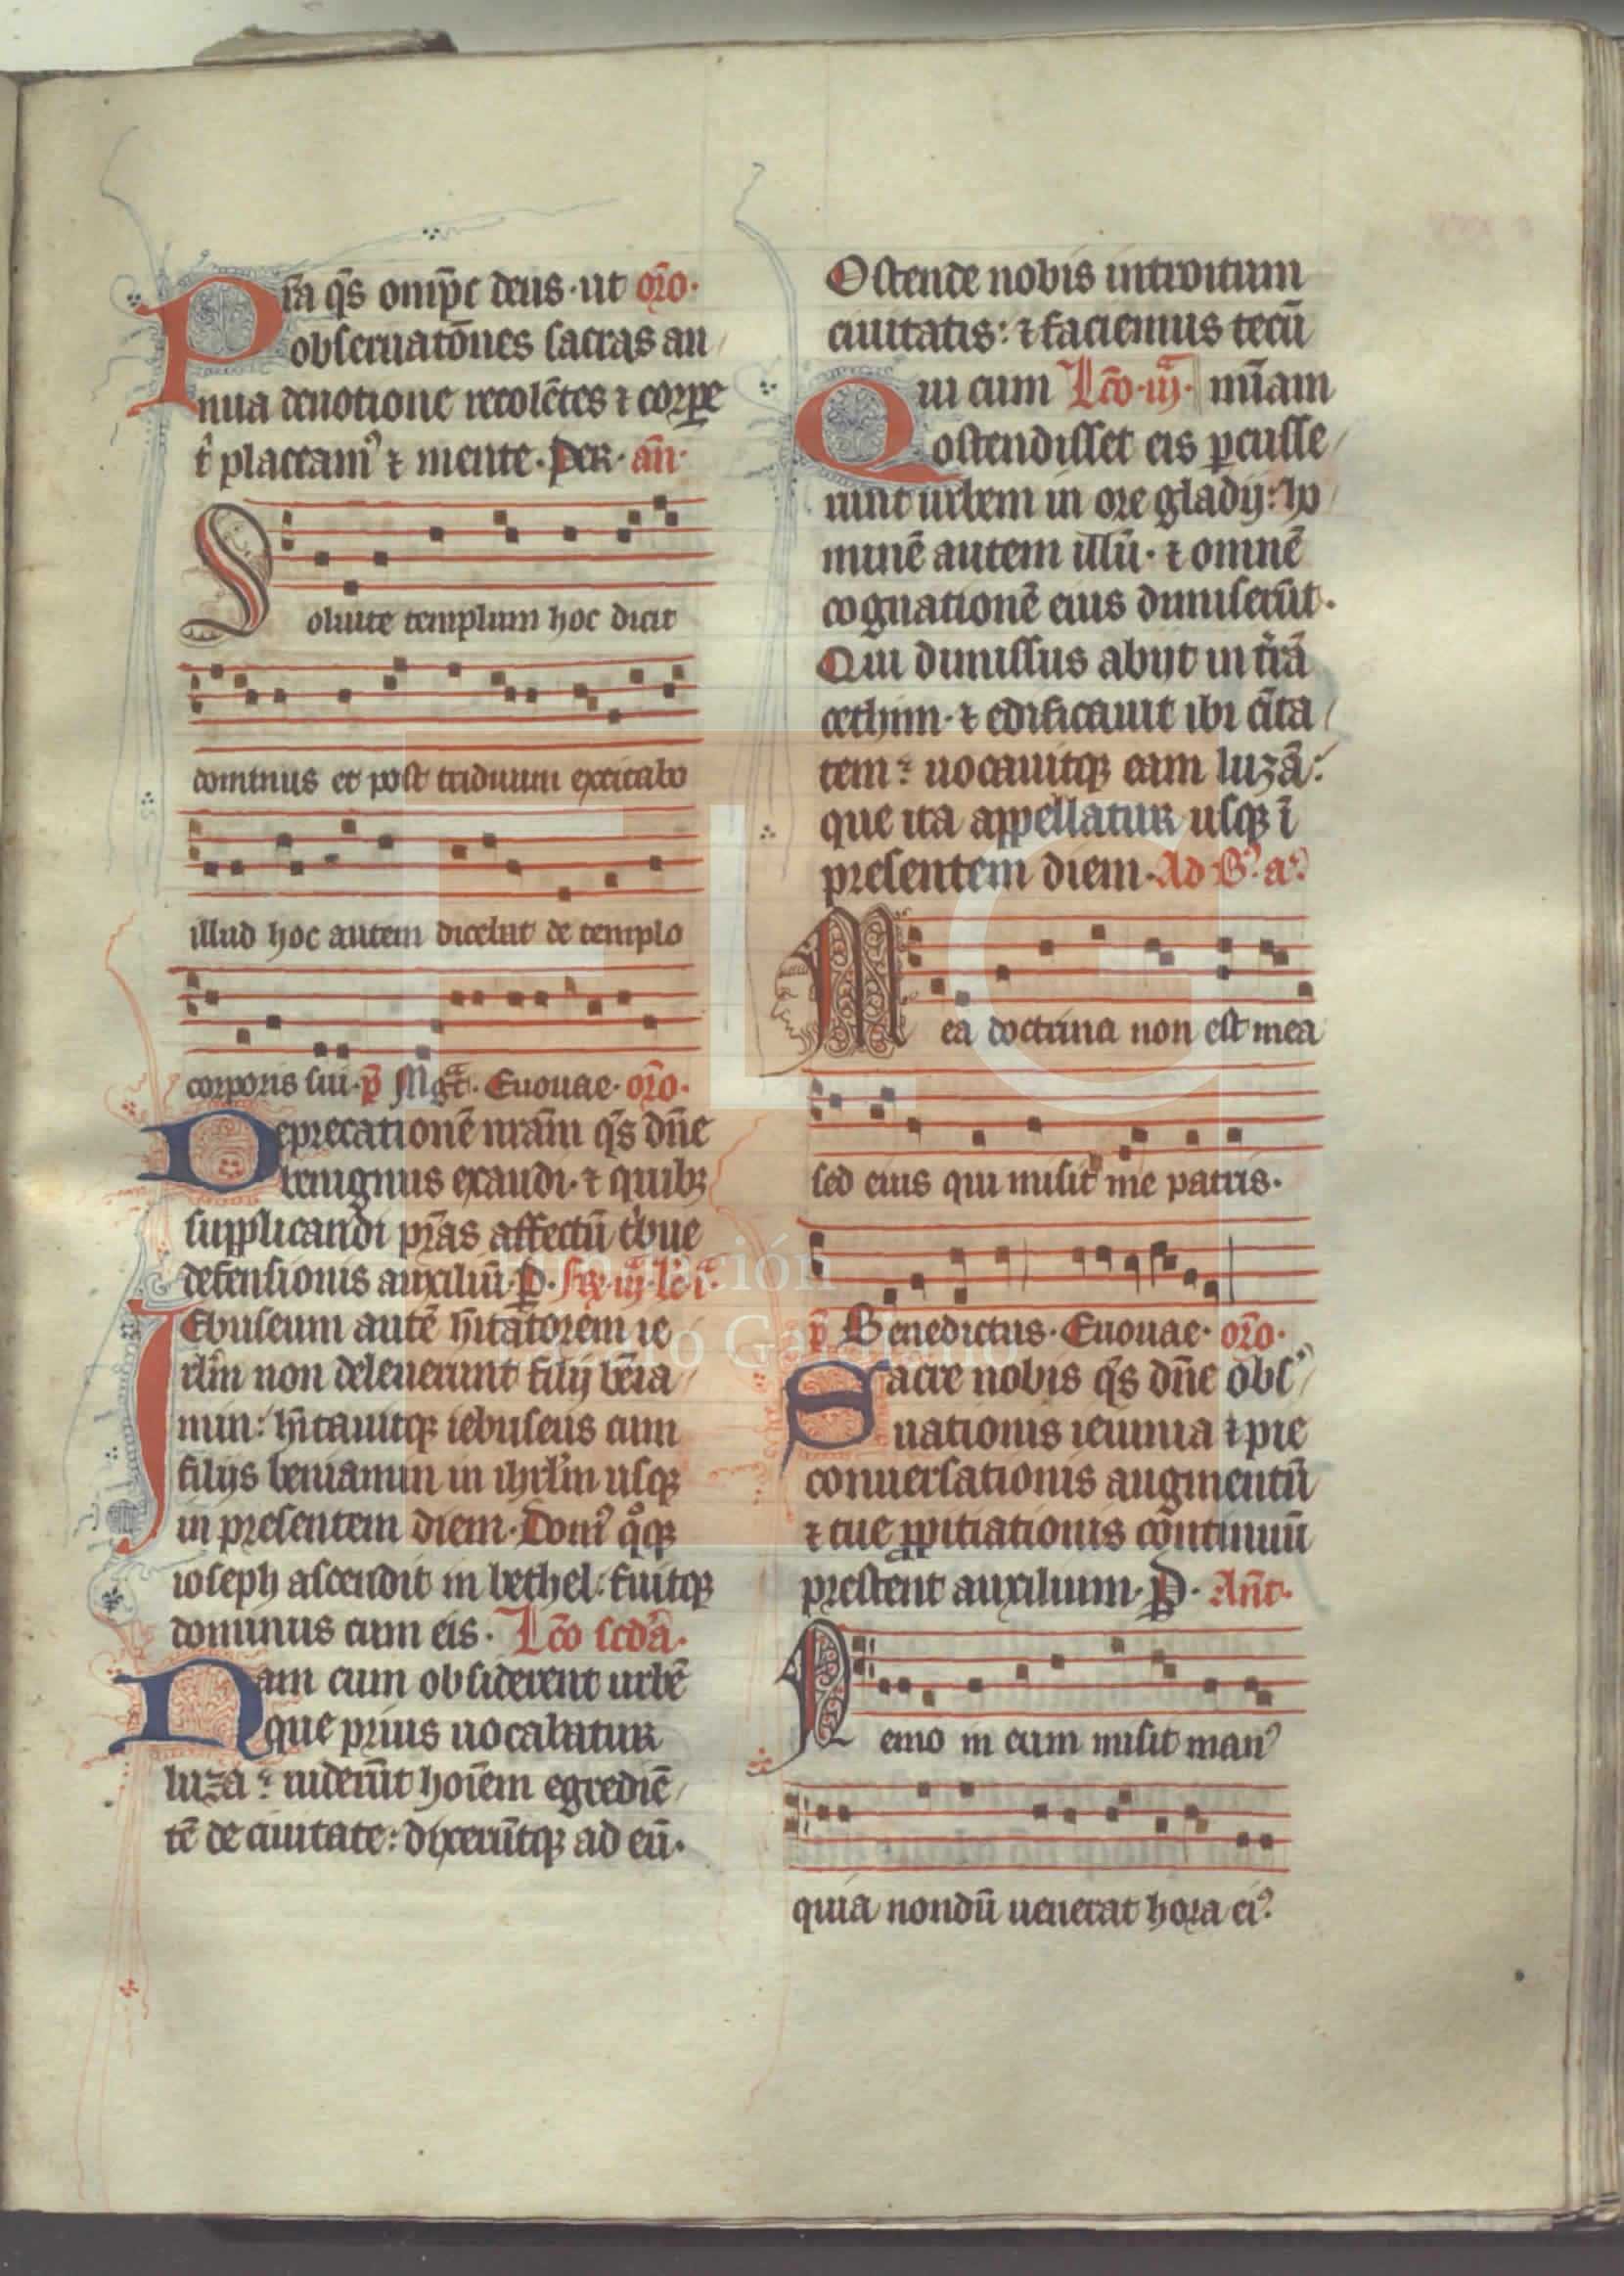 Pr̄a q̄s omīpc deus · ut or̄o ·
obseruatōnes sacras an
nua deuotione recolētes ⁊ corpe
t̉ placeam⁹ ⁊ mente · per · an̄ ·
Soluite templum hoc dicit
dominus et post triduum excitabo
illud hoc autem dicebat de templo
corporis sui · p̄ Mḡt · Euouae · or̄o ·
Deprecationē nr̄am q̄s dn̄e
benignus exaudi · ⁊ quibꝫ
supplicandi pr̄as affectū t̉bue
defensionis auxiliū · P · fr̄ · iij · lc̄ · i ·
Iebuseum autē hītatorem ie
rl̄m non deleuerunt filij bēia
min : hītauitqꝫ iebuseus cum
filijs beniamin in ihrl̄m usqꝫ
in presentem diem · Dom⁹ qͦqꝫ
ioseph ascendit in bethel : fuitqꝫ
dominus cum eis · Lc̄o scd̄a ·
Nam cum obsiderent urbē
que prius uocabatur
luza : uider̄ut hoīem egrediē
tē de ciuitate : dixerūtqꝫ ad eū ·
Ostende nobis introitum
ciuitatis : ⁊ faciemus tecū
Qui cum Lc̄o · iij · mīam
ostendisset eis ꝑcusse
runt urbem in ore gladij : ho
minē autem illū · ⁊ omnē
cognationē eius dimiserūt ·
Qui dimissus abijt in tr̄ā
cethim · ⁊ edificauit ibi cīta
tem : uocauitqꝫ eam luzā :
que ita appellatur usqꝫ ī
presentem diem · Ad B⁹ · a⁹
Mea doctrina non est mea
sed eius qui misit me patris ·
p̄ Benedictus · Euouae · or̄o ·
Sacre nobis q̄s dn̄e obs̉
uationis ieiunia ⁊ pie
conuersationis augmentū
⁊ tue ꝓpitiationis cōtinuū
prestent auxilium · P · An̄t ·
Nemo in eum misit man⁹
quia nondū uenerat hora ei⁹
FLG
Fundación
Lázaro Galdiano